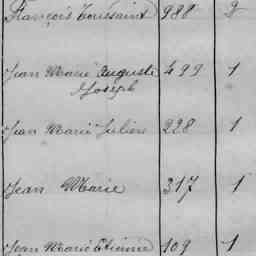 François Toussaint 988 2
Jean Marie Auguste 499 1
Joseph
Jean Marie Julien 228 1
Jean Marie 317 1
Jean Marie Etienne 109 1